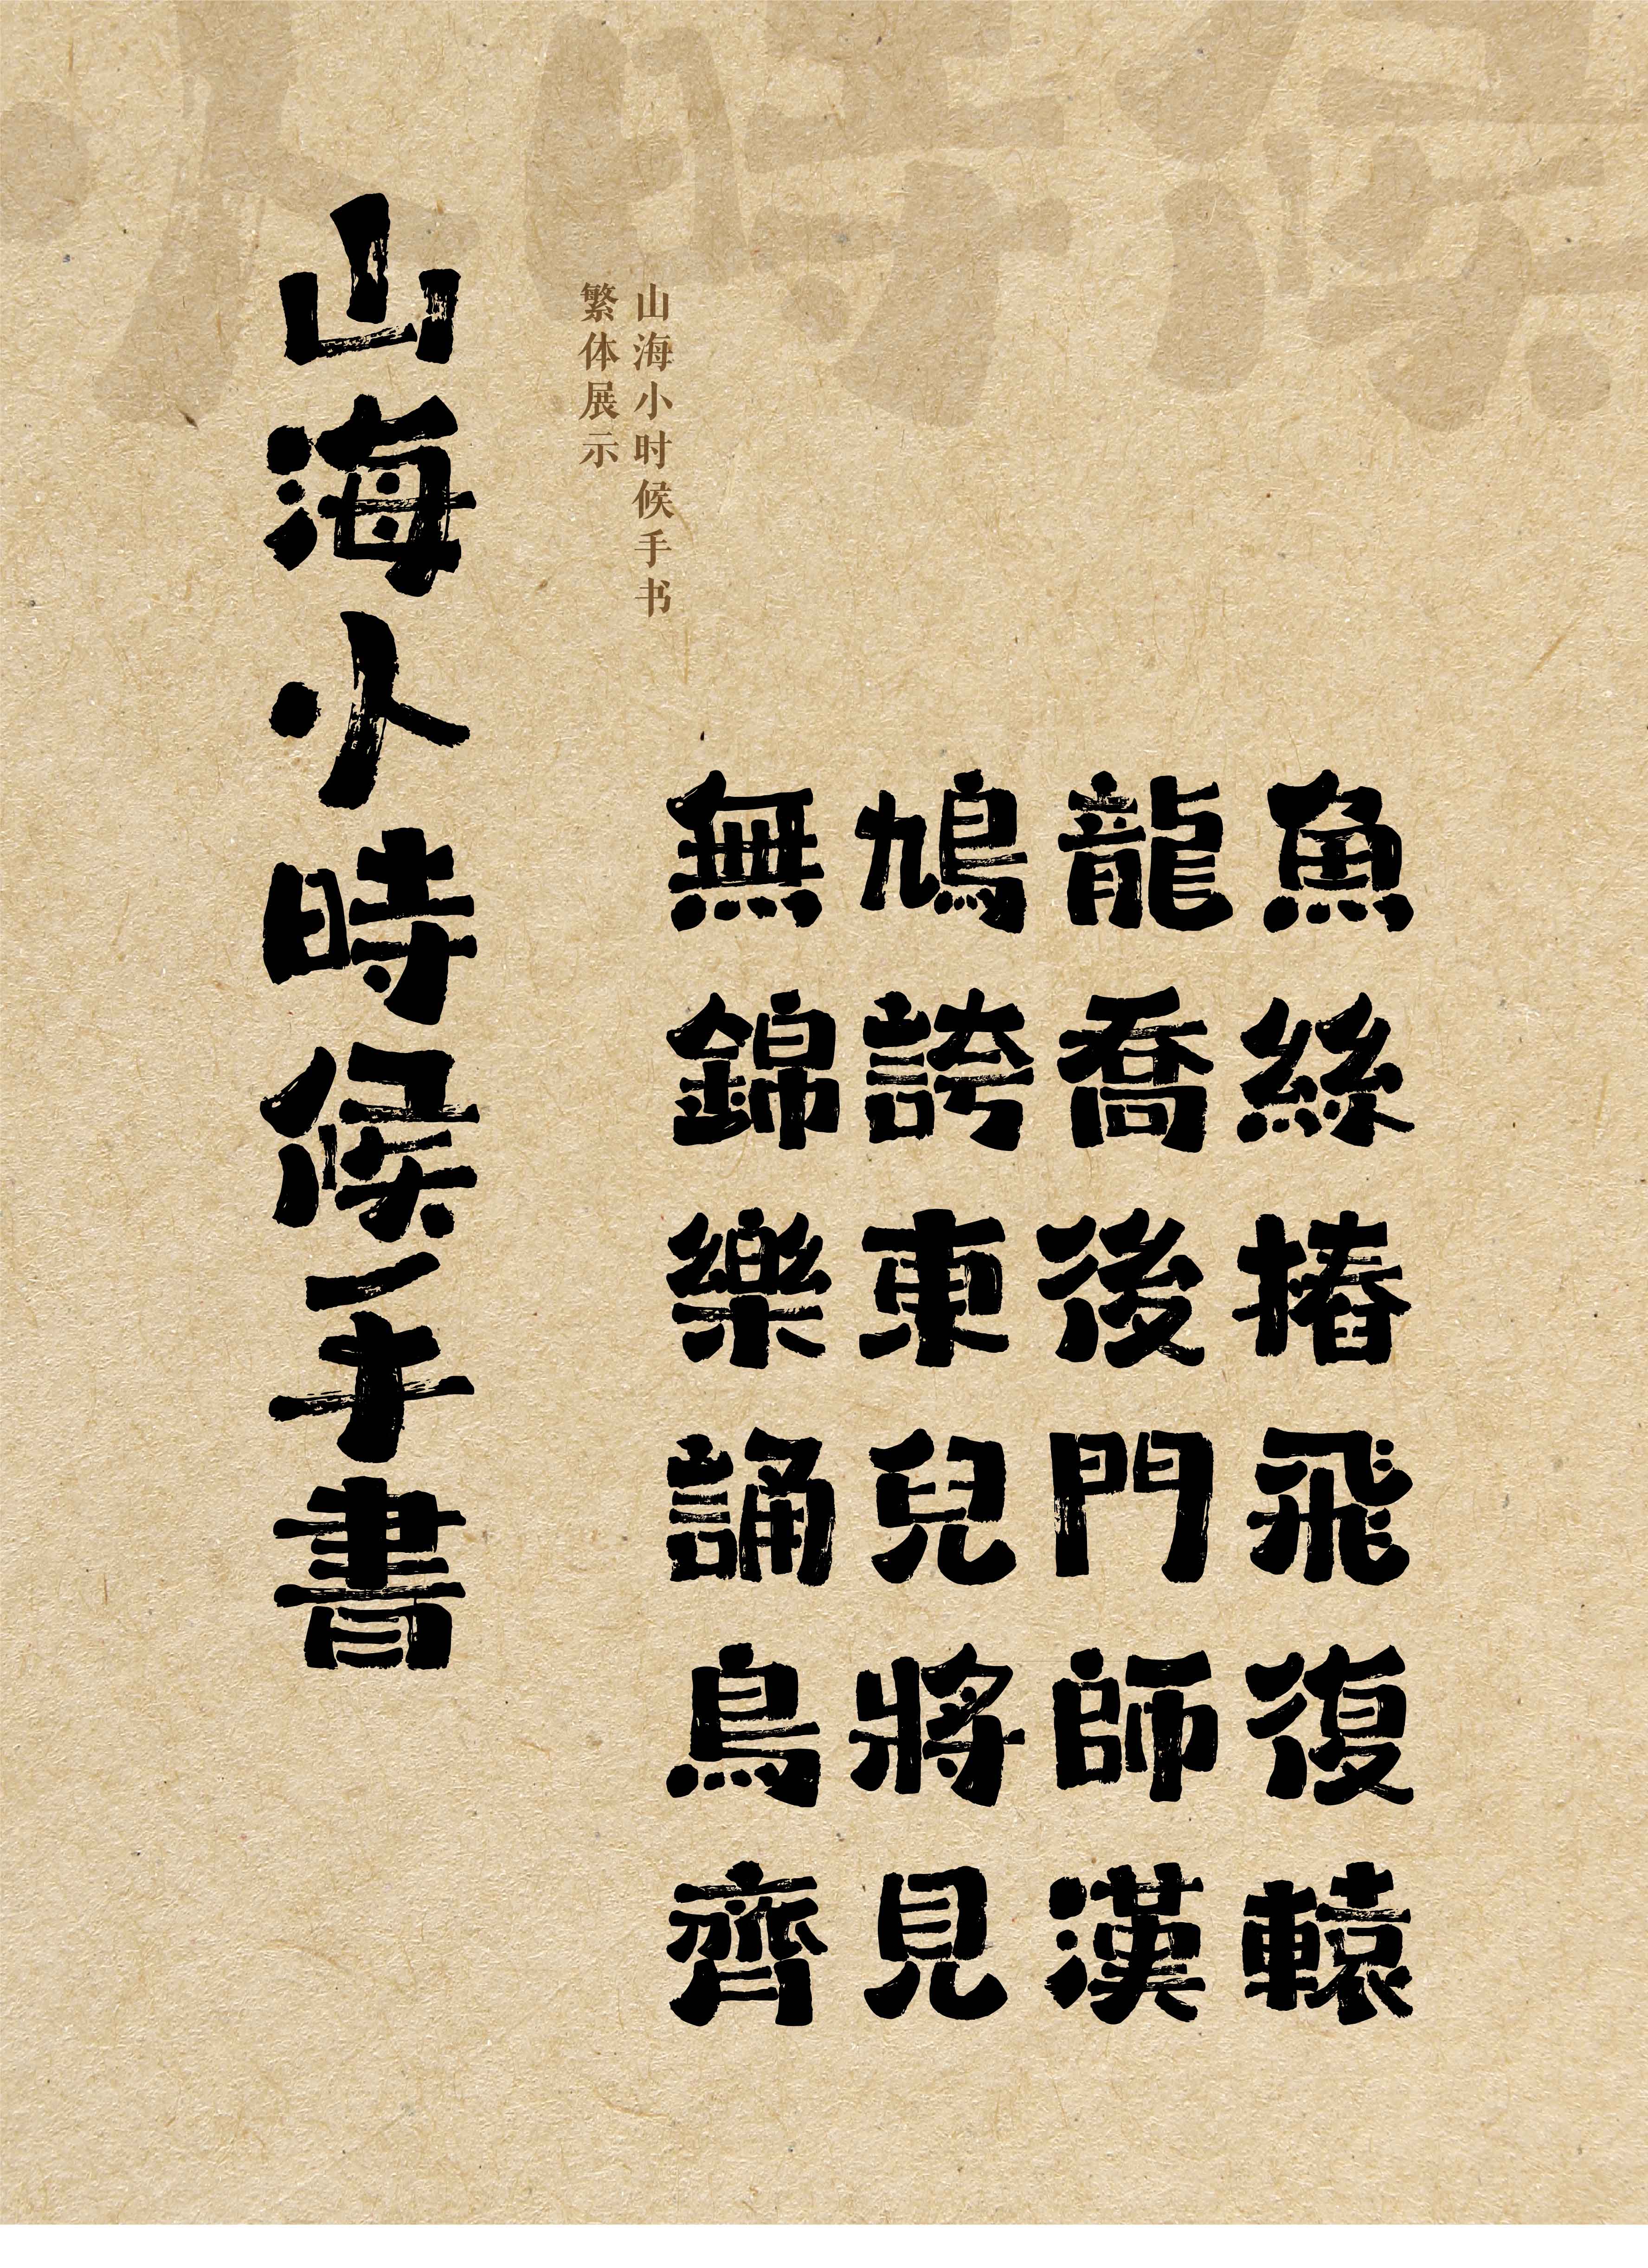 山海小時候手書
山海小时候手书
繁体展示
魚絲摏飛復轅
龍喬後門師漢
鳩誇東兒將見
無錦樂誦鳥齊